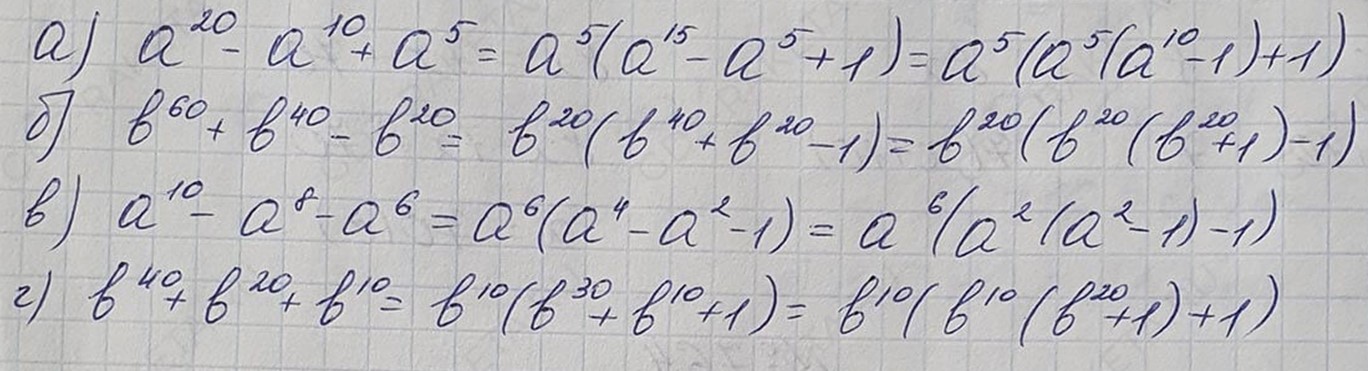 а) a²⁰ - a¹⁰ + a⁵ = a⁵(a¹⁵ - a⁵ + 1) = a⁵(a⁵(a¹⁰ - 1) + 1)
б) b⁶⁰ + b⁴⁰ - b²⁰ = b²⁰(b⁴⁰ + b²⁰ - 1) = b²⁰(b²⁰(b²⁰ + 1) - 1)
в) a¹⁰ - a⁸ - a⁶ = a⁶(a⁴ - a² - 1) = a⁶(a²(a² - 1) - 1)
г) b⁴⁰ + b²⁰ + b¹⁰ = b¹⁰(b³⁰ + b¹⁰ + 1) = b¹⁰(b¹⁰(b²⁰ + 1) + 1)